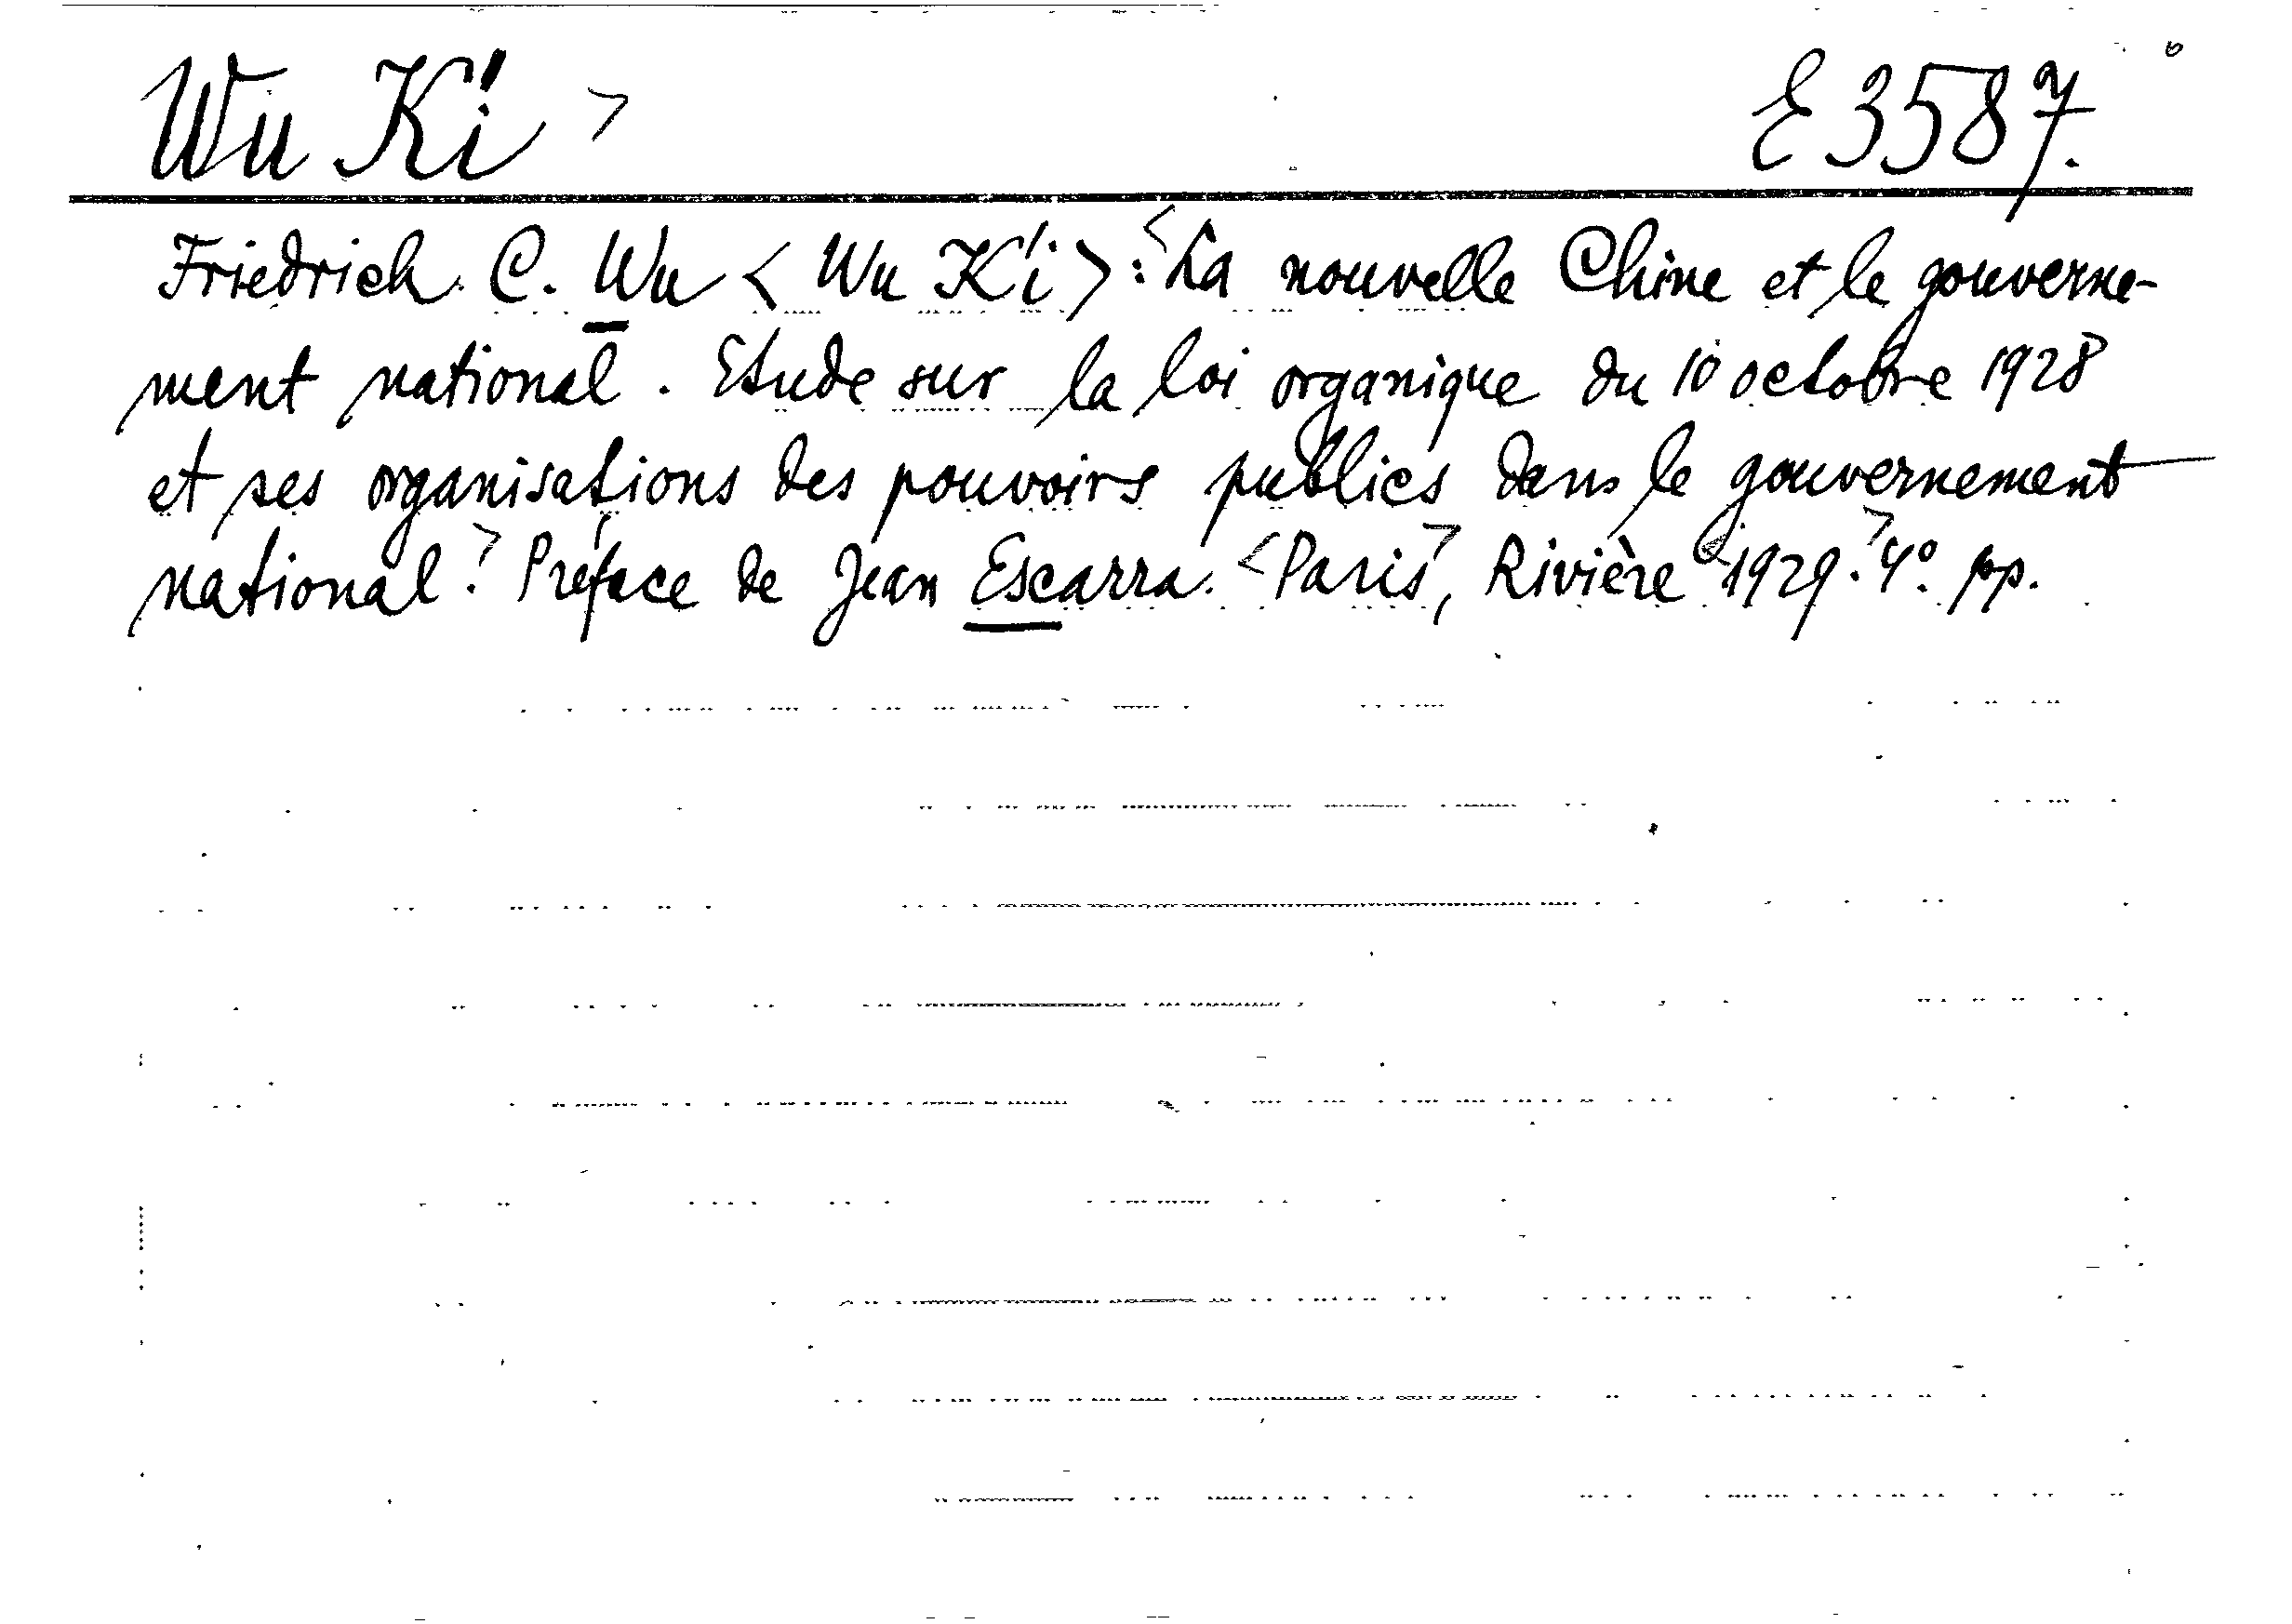 Wu K'i > E 3587.
Friedrich C. Wu < Wu K'i > : <La nouvelle Chine et le gouverne-
ment national. Etude sur la loi organique du 10 octobre 1928
et ses organisations des pouvoirs publics dans le gouvernement
national.> Préface de Jean Escarra. <Paris>, Rivière <1929.> 4°. pp.